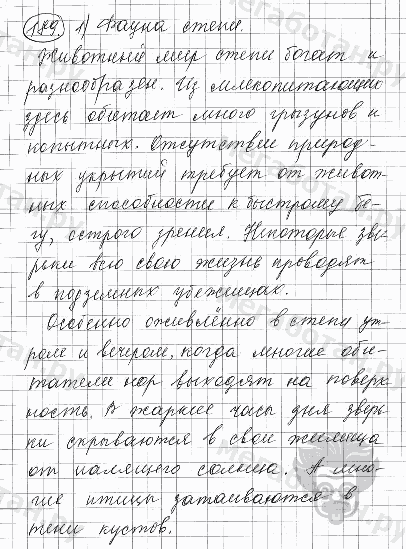 189. 1) Фауна степи.
Животный мир степи богат и
разнообразен. Из млекопитающих
здесь обитает много грызунов и
копытных. Отсутствие природ-
ных укрытий требует от живот-
ных способности к быстрому бе-
гу, острого зрения. Некоторые зве-
рьки всю свою жизнь проводят
в подземных убежищах.
Особенно оживлённо в степи ут-
ром и вечером, когда многие оби-
татели нор выходят на поверх-
ность. В жаркие часы дня зверь-
ки скрываются в свои жилища
от палящего солнца. А мно-
гие птицы затаиваются в
тени кустов.